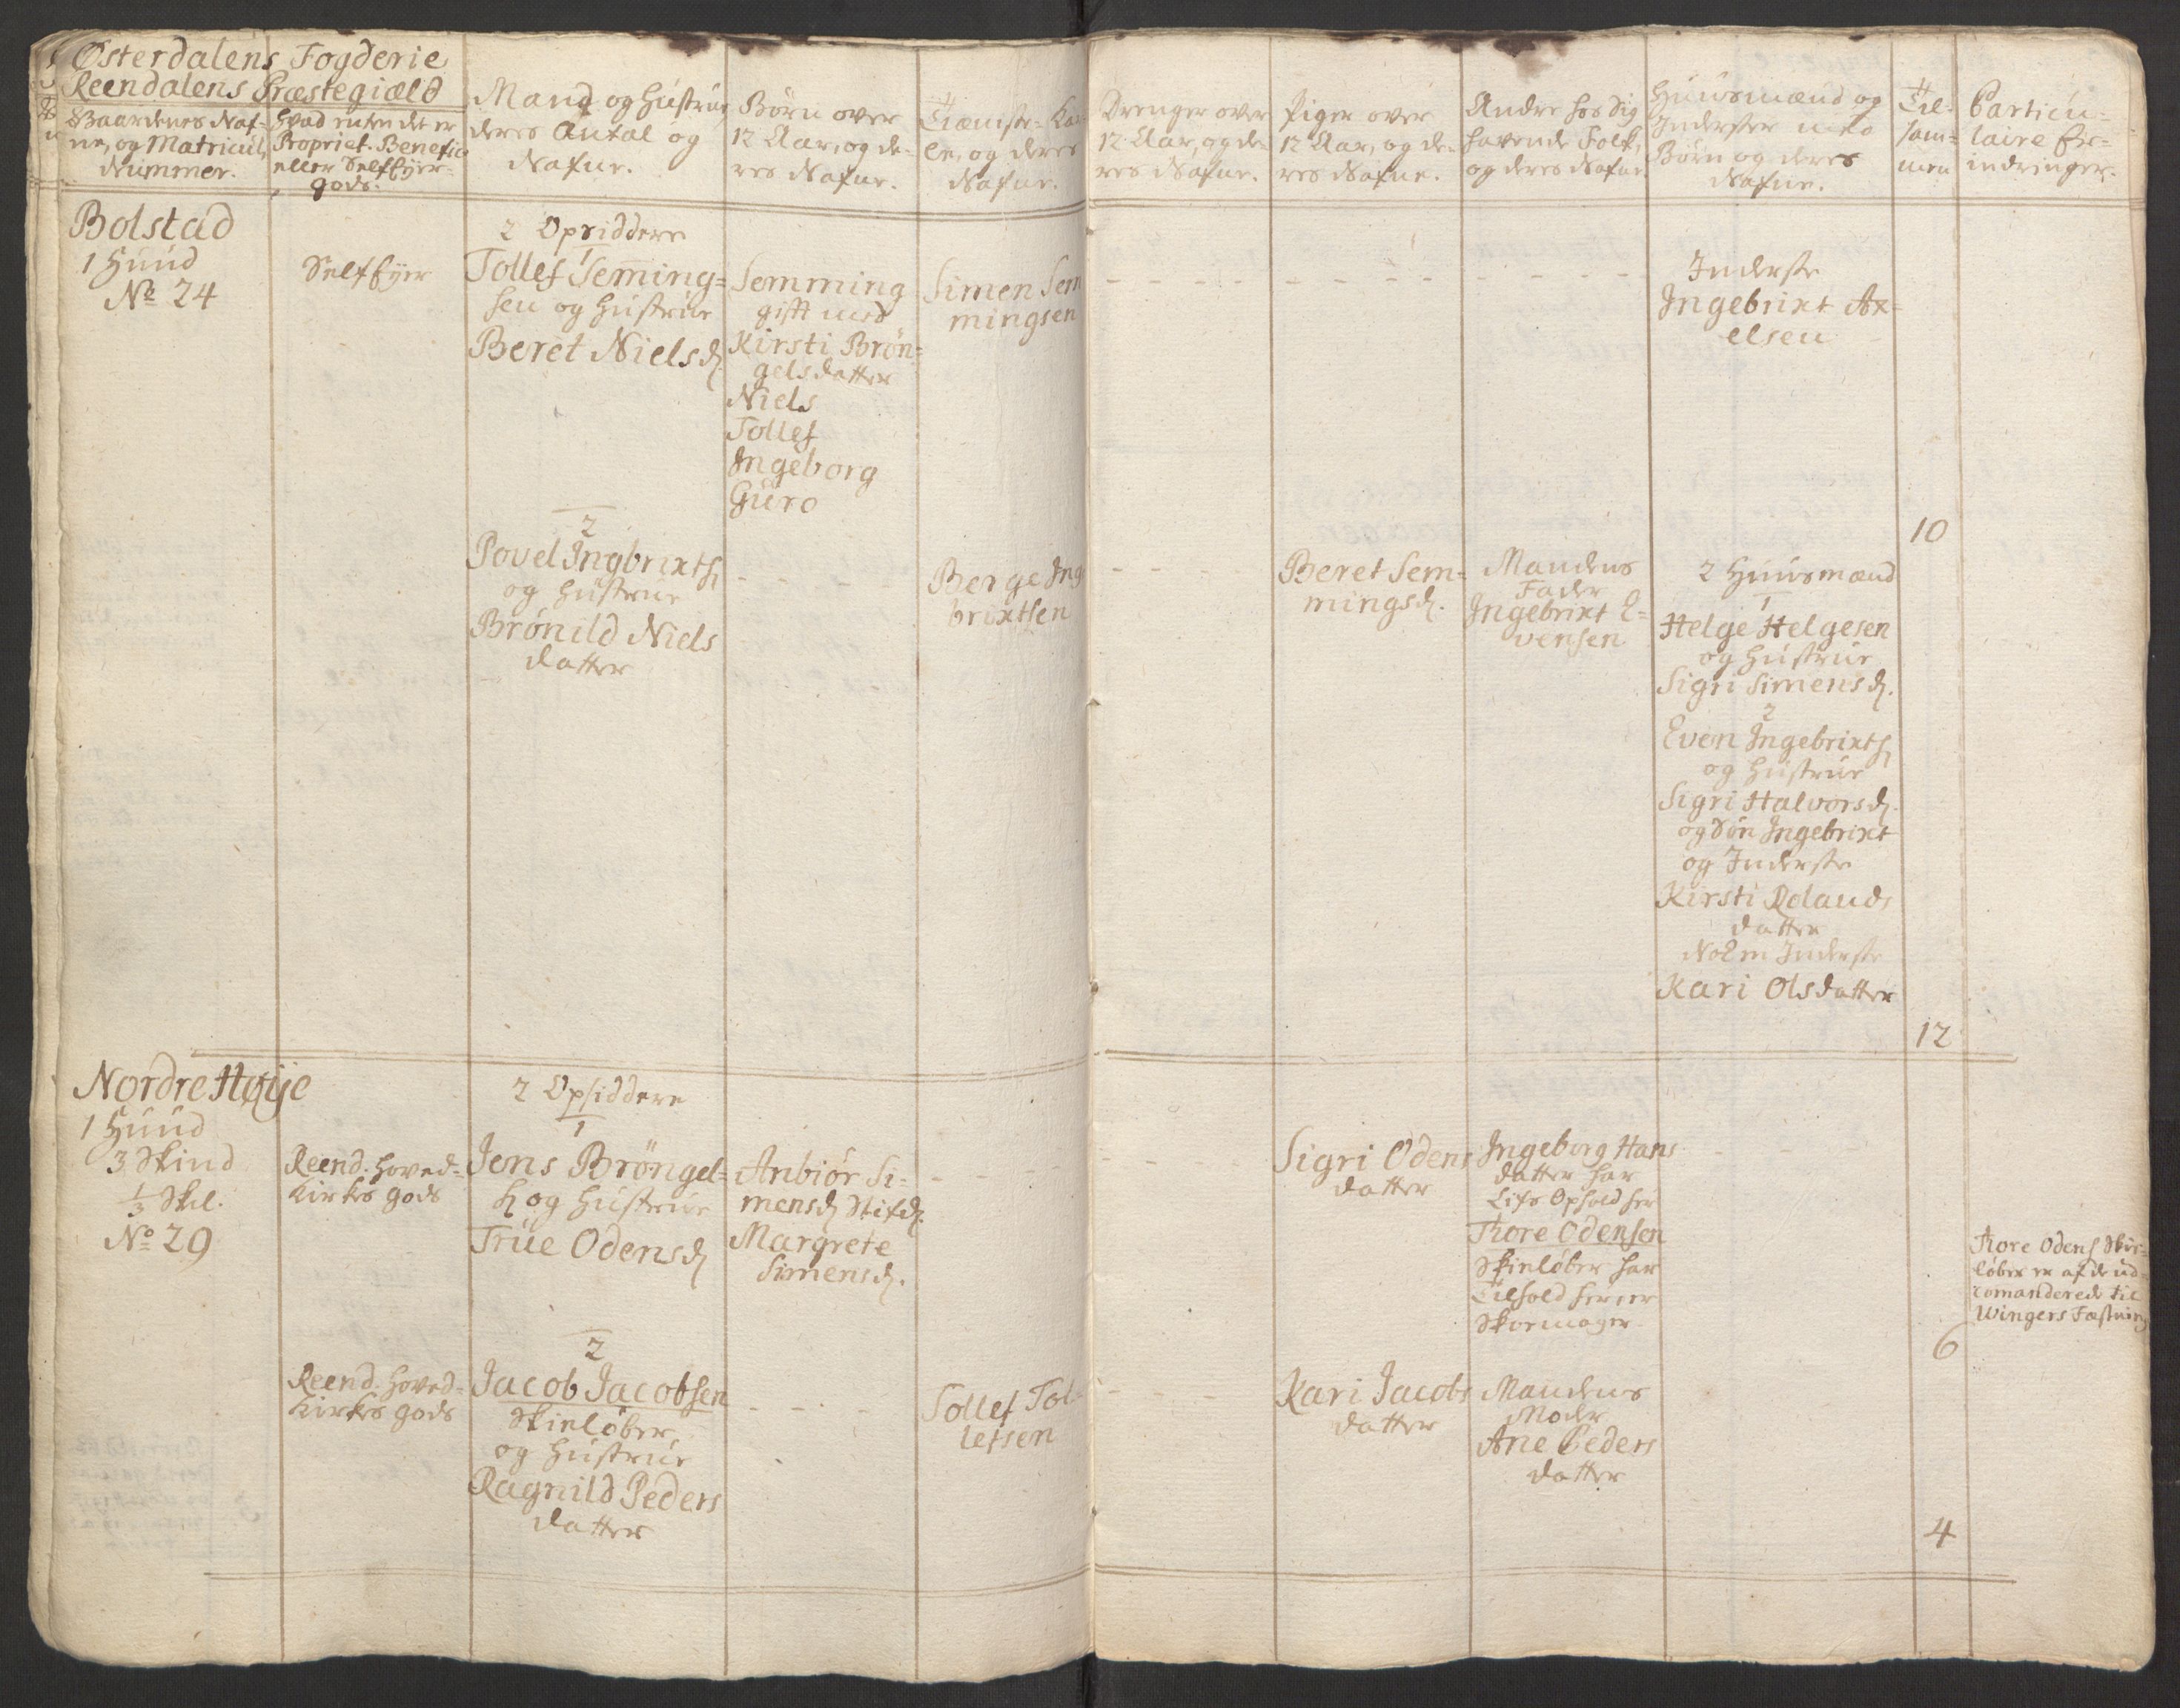 Østerdalens Fogderie
Reendalens Præstegiæld
Gaardenes Naf-
ne, og Matricul,
Nummer.
Hvad enten det er
Propriet. Benefic
eller Selfeyer-
gods.
Mand og Hustrue
deres Antal og
Nafne.
Børn over
12 Aar, og de-
res Nafne.
Tieniste-Kar-
le, og deres
Nafne.
Drenger over
12 Aar, og de-
res Nafne.
Piger over
12 Aar, og de-
res Nafne.
Andre hos Sig
havende Folk,
og deres Nafne
Huusmænd og
Inderster med
Børn og deres
Nafne.
Til-
sam-
men
Particu-
laire Er-
indringer.
Bolstad
1 Huud
No 24
Selfeyer
2 Opsiddere
1
Tollef Seming=
sen og Hustrue
Beret Nielsd.
Semming
gift med
Kirsti Brøn=
gelsdatter
Niels
Tollef
Ingeborg
Guro
Simen Sem
mingsen
Inderste
Ingebrixt Ax-
elsen
10
2
Povel Ingbrixts.
og Hustrue
Brønild Niels
datter
Berge Ing
brixtsen
Beret Sem=
mingsd.
Mandens
Fader
Ingebrixt E-
vensen
2 Huusmænd
1
Helge Helgesen
og Hustrue
Sigri Simensd.
2
Even Ingebrixts.
og Hustrue
Sigri Halvorsd.
og Søn Ingebrixt
og Inderste
Kirsti Rolands
datter
Noch Inderste
Kari Olsdatter
12
Nordre Høije
1 Huud
3 Skind
1/3 Skil.
No 29
Reend. Hoved-
Kirkes gods
2 Opsiddere
1
Jens Brøngel=
s. og Hustrue
Trüe Odensd.
Anbiør Si-
mensd. Stifd.
Margrete
Simensd.
Sigri Odens
datter
Ingeborg Hans
datter har
Lifs Ophold her
Tiore Odensen
Skieløber har
Tilhold her, er
Skoemager
Tiore Odens. Skie-
løber er af de ud-
comanderede til
Wingers Fæstning
6
2
Reend. Hoved-
Kirkes gods
Jacob Jacobsen
Skieløber,
og Hustrue
Ragnild Peders
datter
Tollef Tol-
lefsen
Kari Jacobs
datter
Mandens
Moder
Ane Peders
datter
4